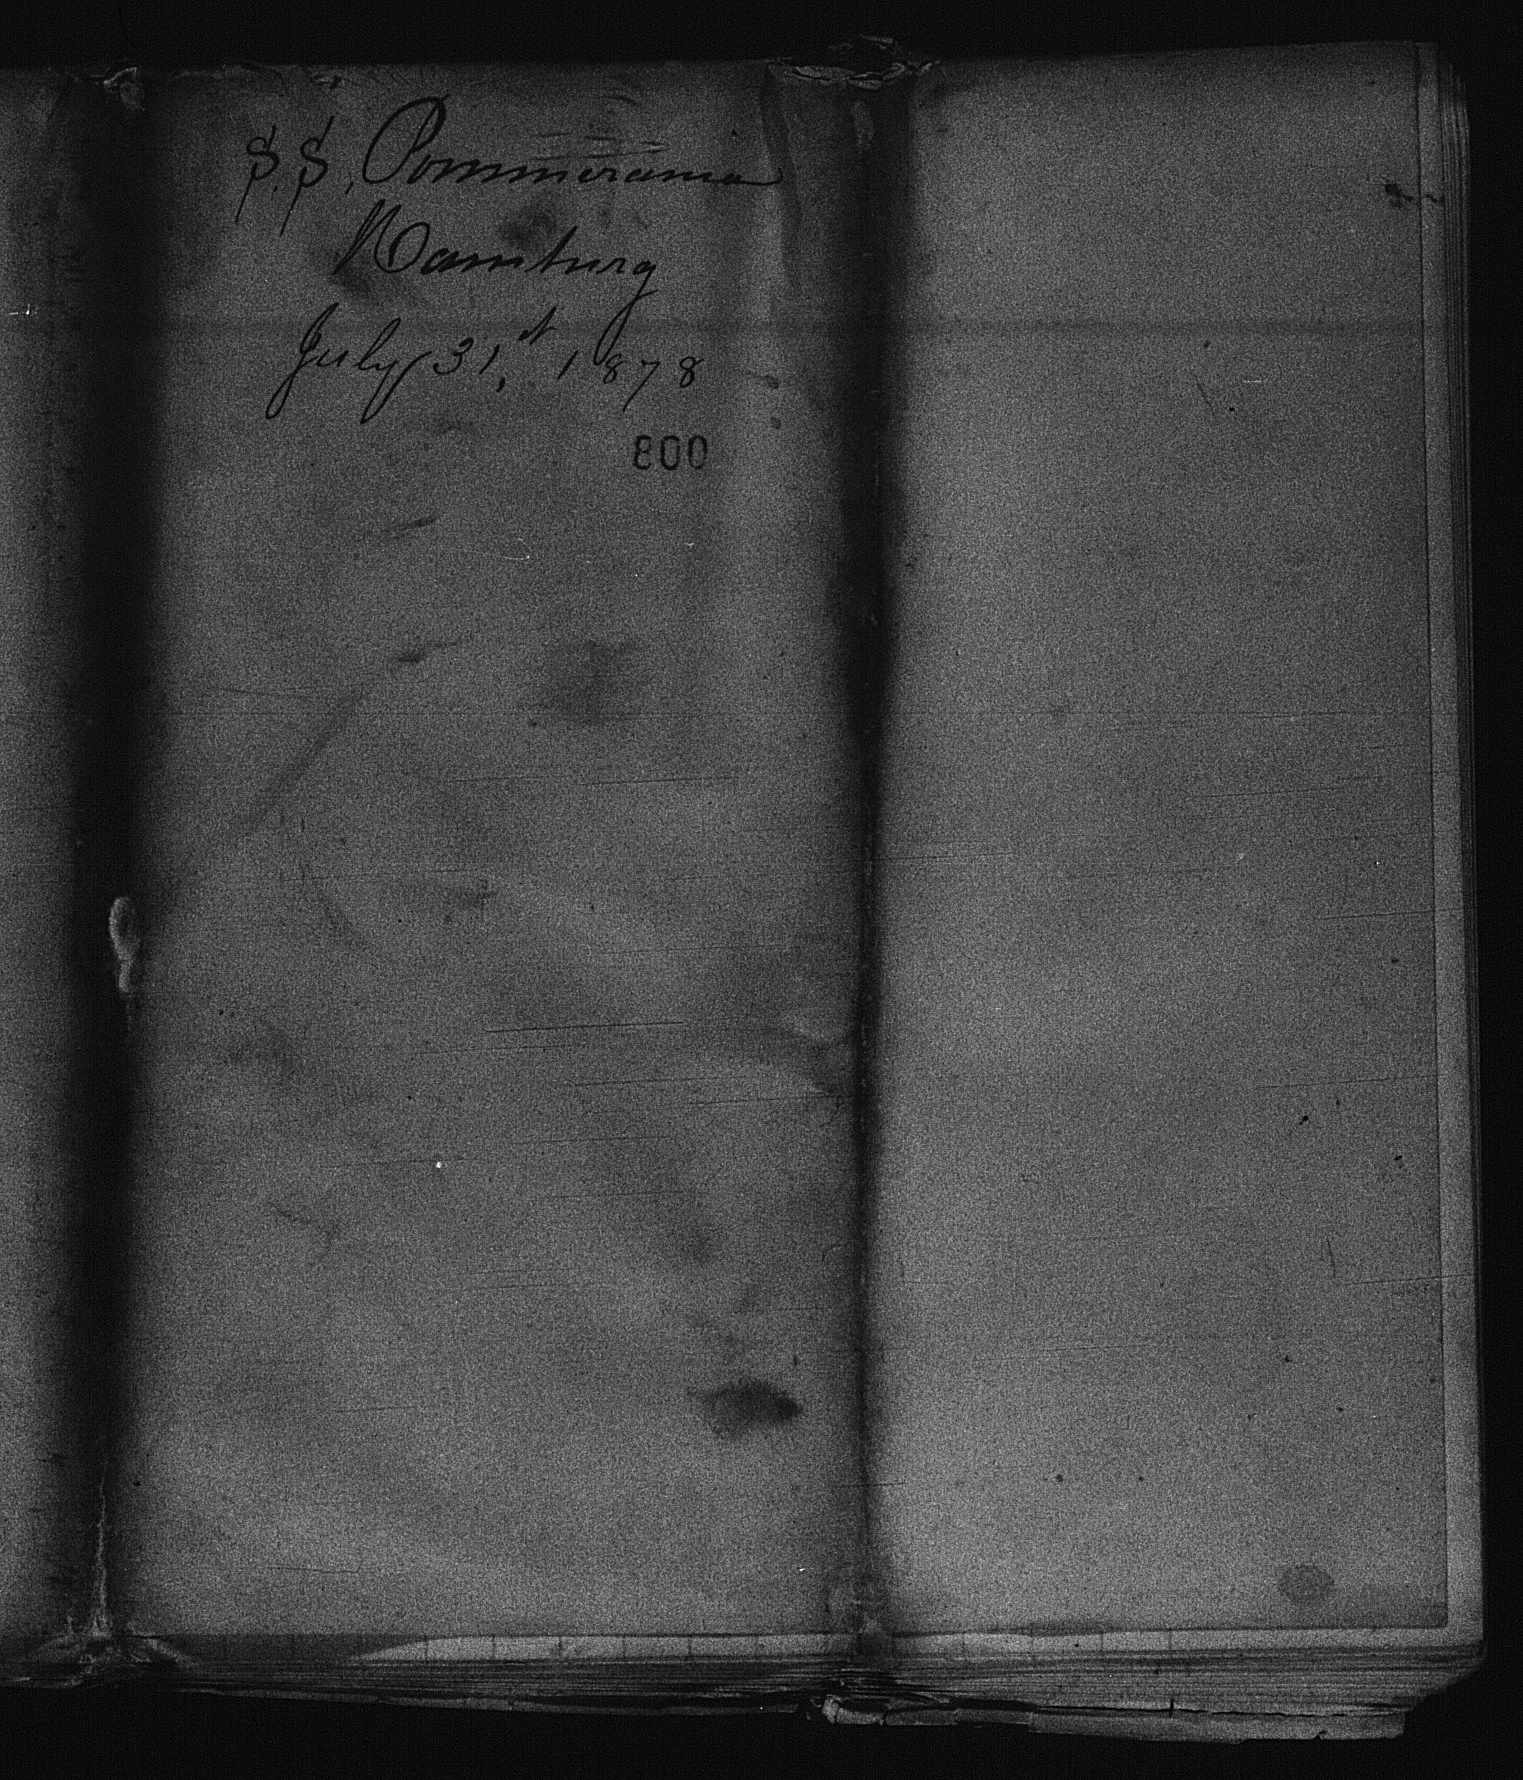 S.S. Pommerania
Hamburg
July 31,st 1878
800